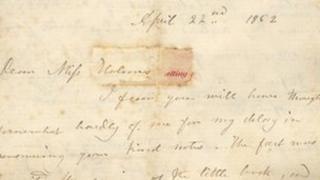 April 22nd 1862
Dear Miss Holmes
I fear you will have thought
somewhat hardly of me for my delay in
answering your kind notes. The fact was
of the little book, and